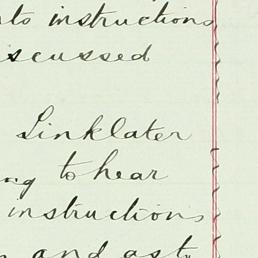 to instructions
iscussed
Linklater
ng to hear
instructions
and ast